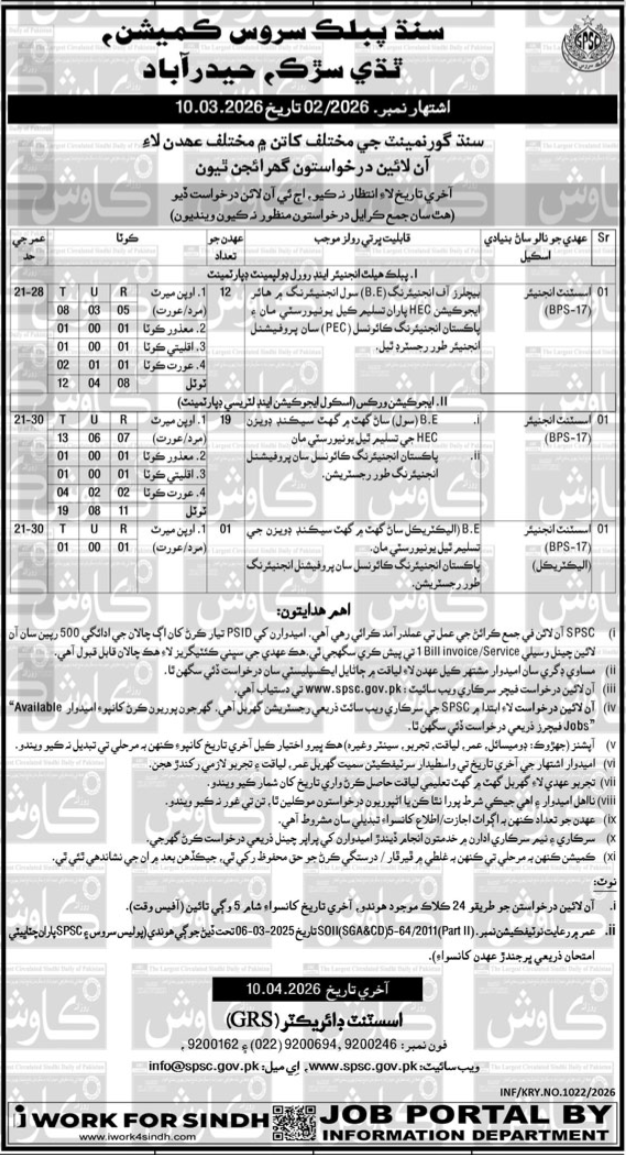 سنڌ پبلڪ سروس ڪميشن،
ٿڌي سڙڪ، حيدرآباد
SPSC
اشتهار نمبر. 02/2026 تاريخ 10.03.2026
سنڌ گورنمينٽ جي مختلف کاتن ۾ مختلف عهدن لاءِ
آن لائين درخواستون گهرائجن ٿيون
آخري تاريخ لاءِ انتظار نه ڪيو، اڄ ئي آن لائن درخواست ڏيو
(هٿ سان جمع ڪرايل درخواستون منظور نه ڪيون وينديون)
Sr عهدي جو نالو ساڻ بنيادي اسڪيل قابليت ڀرتي رولز موجب عهدن جو تعداد ڪوٽا عمر جي حد
I. پبلڪ هيلٿ انجنيئر اينڊ رورل ڊولپمينٽ ڊپارٽمينٽ
01 اسسٽنٽ انجنيئر (BPS-17) بيچلرز آف انجنيئرنگ (B.E) سول انجنيئرنگ ۾ هائر ايجوڪيشن HEC پاران تسليم ڪيل يونيورسٽي مان ۽ پاڪستان انجنيئرنگ ڪائونسل (PEC) سان پروفيشنل انجنيئر طور رجسٽرڊ ٿيل. 12 21-28
R U T
1. اوپن ميرٽ (مرد/عورت) 05 03 08
2. معذور ڪوٽا 01 00 01
3. اقليتي ڪوٽا 01 00 01
4. عورت ڪوٽا 01 01 02
ٽوٽل 08 04 12
II. ايجوڪيشن ورڪس (اسڪول ايجوڪيشن اينڊ لٽريسي ڊپارٽمينٽ)
01 اسسٽنٽ انجنيئر (BPS-17) 19 21-30
i. B.E (سول) ساڻ گهٽ ۾ گهٽ سيڪنڊ ڊويزن HEC جي تسليم ٿيل يونيورسٽي مان
ii. پاڪستان انجنيئرنگ ڪائونسل سان پروفيشنل انجنيئرنگ طور رجسٽريشن.
R U T
1. اوپن ميرٽ (مرد/عورت) 07 06 13
2. معذور ڪوٽا 01 00 01
3. اقليتي ڪوٽا 01 00 01
4. عورت ڪوٽا 02 02 04
ٽوٽل 11 08 19
01 اسسٽنٽ انجنيئر (BPS-17) (اليڪٽريڪل) B.E (اليڪٽريڪل ساڻ گهٽ ۾ گهٽ سيڪنڊ ڊويزن جي تسليم ٿيل يونيورسٽي مان. پاڪستان انجنيئرنگ ڪائونسل سان پروفيشنل انجنيئرنگ طور رجسٽريشن. 01 21-30
R U T
1. اوپن ميرٽ (مرد/عورت) 01 00 01
اهم هدايتون:
i) SPSC آن لائن في جمع ڪرائڻ جي عمل تي عملدرآمد ڪرائي رهي آهي. اميدوارن کي PSID تيار ڪرڻ کان اڳ چالان جي ادائگي 500 رپين سان آن
لائين چينل وسيلي 1 Bill invoice/Service تي پيش ڪري سگهجي ٿي. هڪ عهدي جي سڀني ڪئٽيگريز لاءِ هڪ چالان قابل قبول آهي.
ii) مساوي ڊگري سان اميدوار مشتهر ڪيل عهدن لاءِ لياقت ۾ ڄاڻايل ايڪسپليسٽي سان درخواست ڏئي سگهن ٿا.
iii) آن لائين درخواست فيچر سرڪاري ويب سائيٽ : www.spsc.gov.pk تي دستياب آهي.
iv) آن لائين درخواست لاءِ ابتدا ۾ SPSC جي سرڪاري ويب سائٽ ذريعي رجسٽريشن گهربل آهي. گهرجون پوريون ڪرڻ کانپوءِ اميدوار "Available
Jobs" فيچرز ذريعي درخواست ڏئي سگهن ٿا.
v) آپشنز (جهڙوڪ: ڊوميسائل، عمر، لياقت، تجربو، سينٽر وغيره) هڪ ڀيرو اختيار ڪيل آخري تاريخ کانپوءِ ڪنهن به مرحلي تي تبديل نه ڪيو ويندو.
vi) اميدوار اشتهار جي آخري تاريخ تي واسطيدار سرٽيفڪيٽن سميت گهربل عمر، لياقت ۽ تجربو لازمي رکندڙ هجن.
vii) تجربو عهدي لاءِ گهربل گهٽ ۾ گهٽ تعليمي لياقت حاصل ڪرڻ واري تاريخ کان شمار ڪيو ويندو.
viii) نااهل اميدوار ۽ اهي جيڪي شرط پورا نٿا ڪن يا اڻپوريون درخواستون موڪلين ٿا، تن تي غور نه ڪيو ويندو.
ix) عهدن جو تعداد ڪنهن به اڳواٽ اجازت/اطلاع کانسواءِ تبديلي سان مشروط آهي.
x) سرڪاري ۽ نيم سرڪاري ادارن ۾ خدمتون انجام ڏيندڙ اميدوارن کي پراپر چينل ذريعي درخواست ڪرڻ گهرجي.
xi) ڪميشن ڪنهن به مرحلي تي ڪنهن به غلطي ۾ ڦيرڦار / درستگي ڪرڻ جو حق محفوظ رکي ٿي، جيڪڏهن بعد ۾ ان جي نشاندهي ٿئي ٿي.
نوٽ:
i. آن لائين درخواستن جو طريقو 24 ڪلاڪ موجود هوندو، آخري تاريخ کانسواءِ شام 5 وڳي تائين (آفيس وقت).
ii. عمر ۾ رعايت نوٽيفڪيشن نمبر. SOII(SGA&CD)5-64/2011(Part II) تاريخ 06-03-2025 تحت ڏيڻ جوڳي هوندي (پوليس سروس ۽ SPSC پاران چٽاڀيٽي
امتحان ذريعي ڀرجندڙ عهدن کانسواءِ).
آخري تاريخ 10.04.2026
اسسٽنٽ ڊائريڪٽر (GRS)
فون نمبر: 9200246, 9200694 (022) ۽ 9200162
ويب سائيٽ: www.spsc.gov.pk، اِي ميل: info@spsc.gov.pk
INF/KRY.NO.1022/2026
i WORK FOR SINDH
www.iwork4sindh.com
JOB PORTAL BY
INFORMATION DEPARTMENT